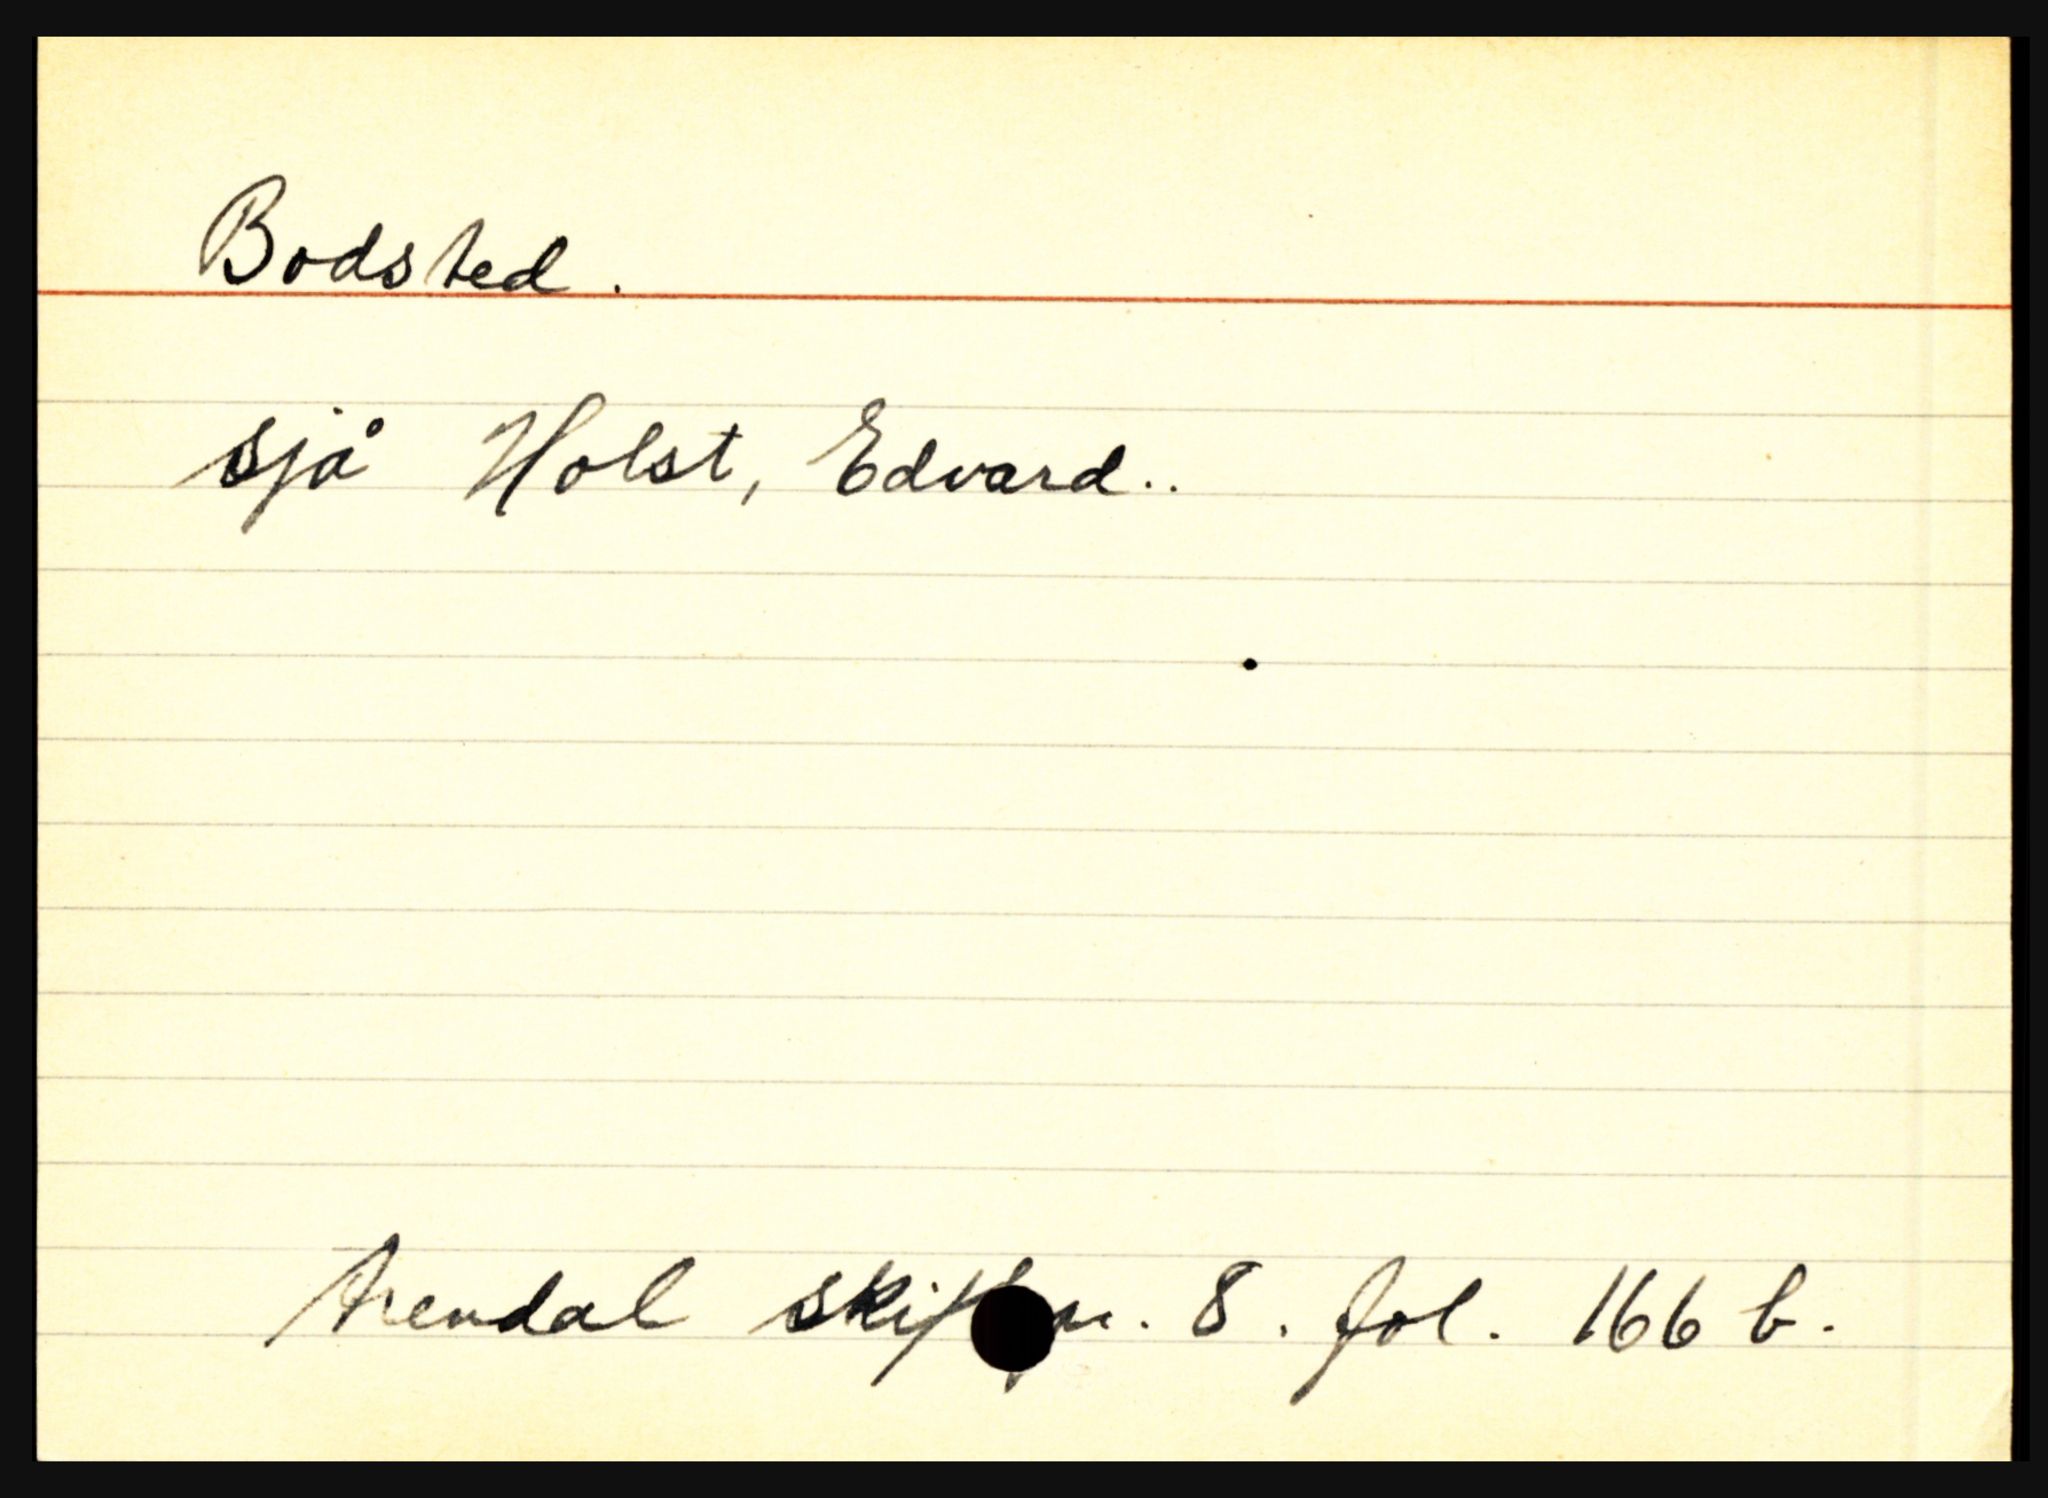 Bodsted.
sjå Holst, Edvard..
Arendal 8. fol. 166 b.